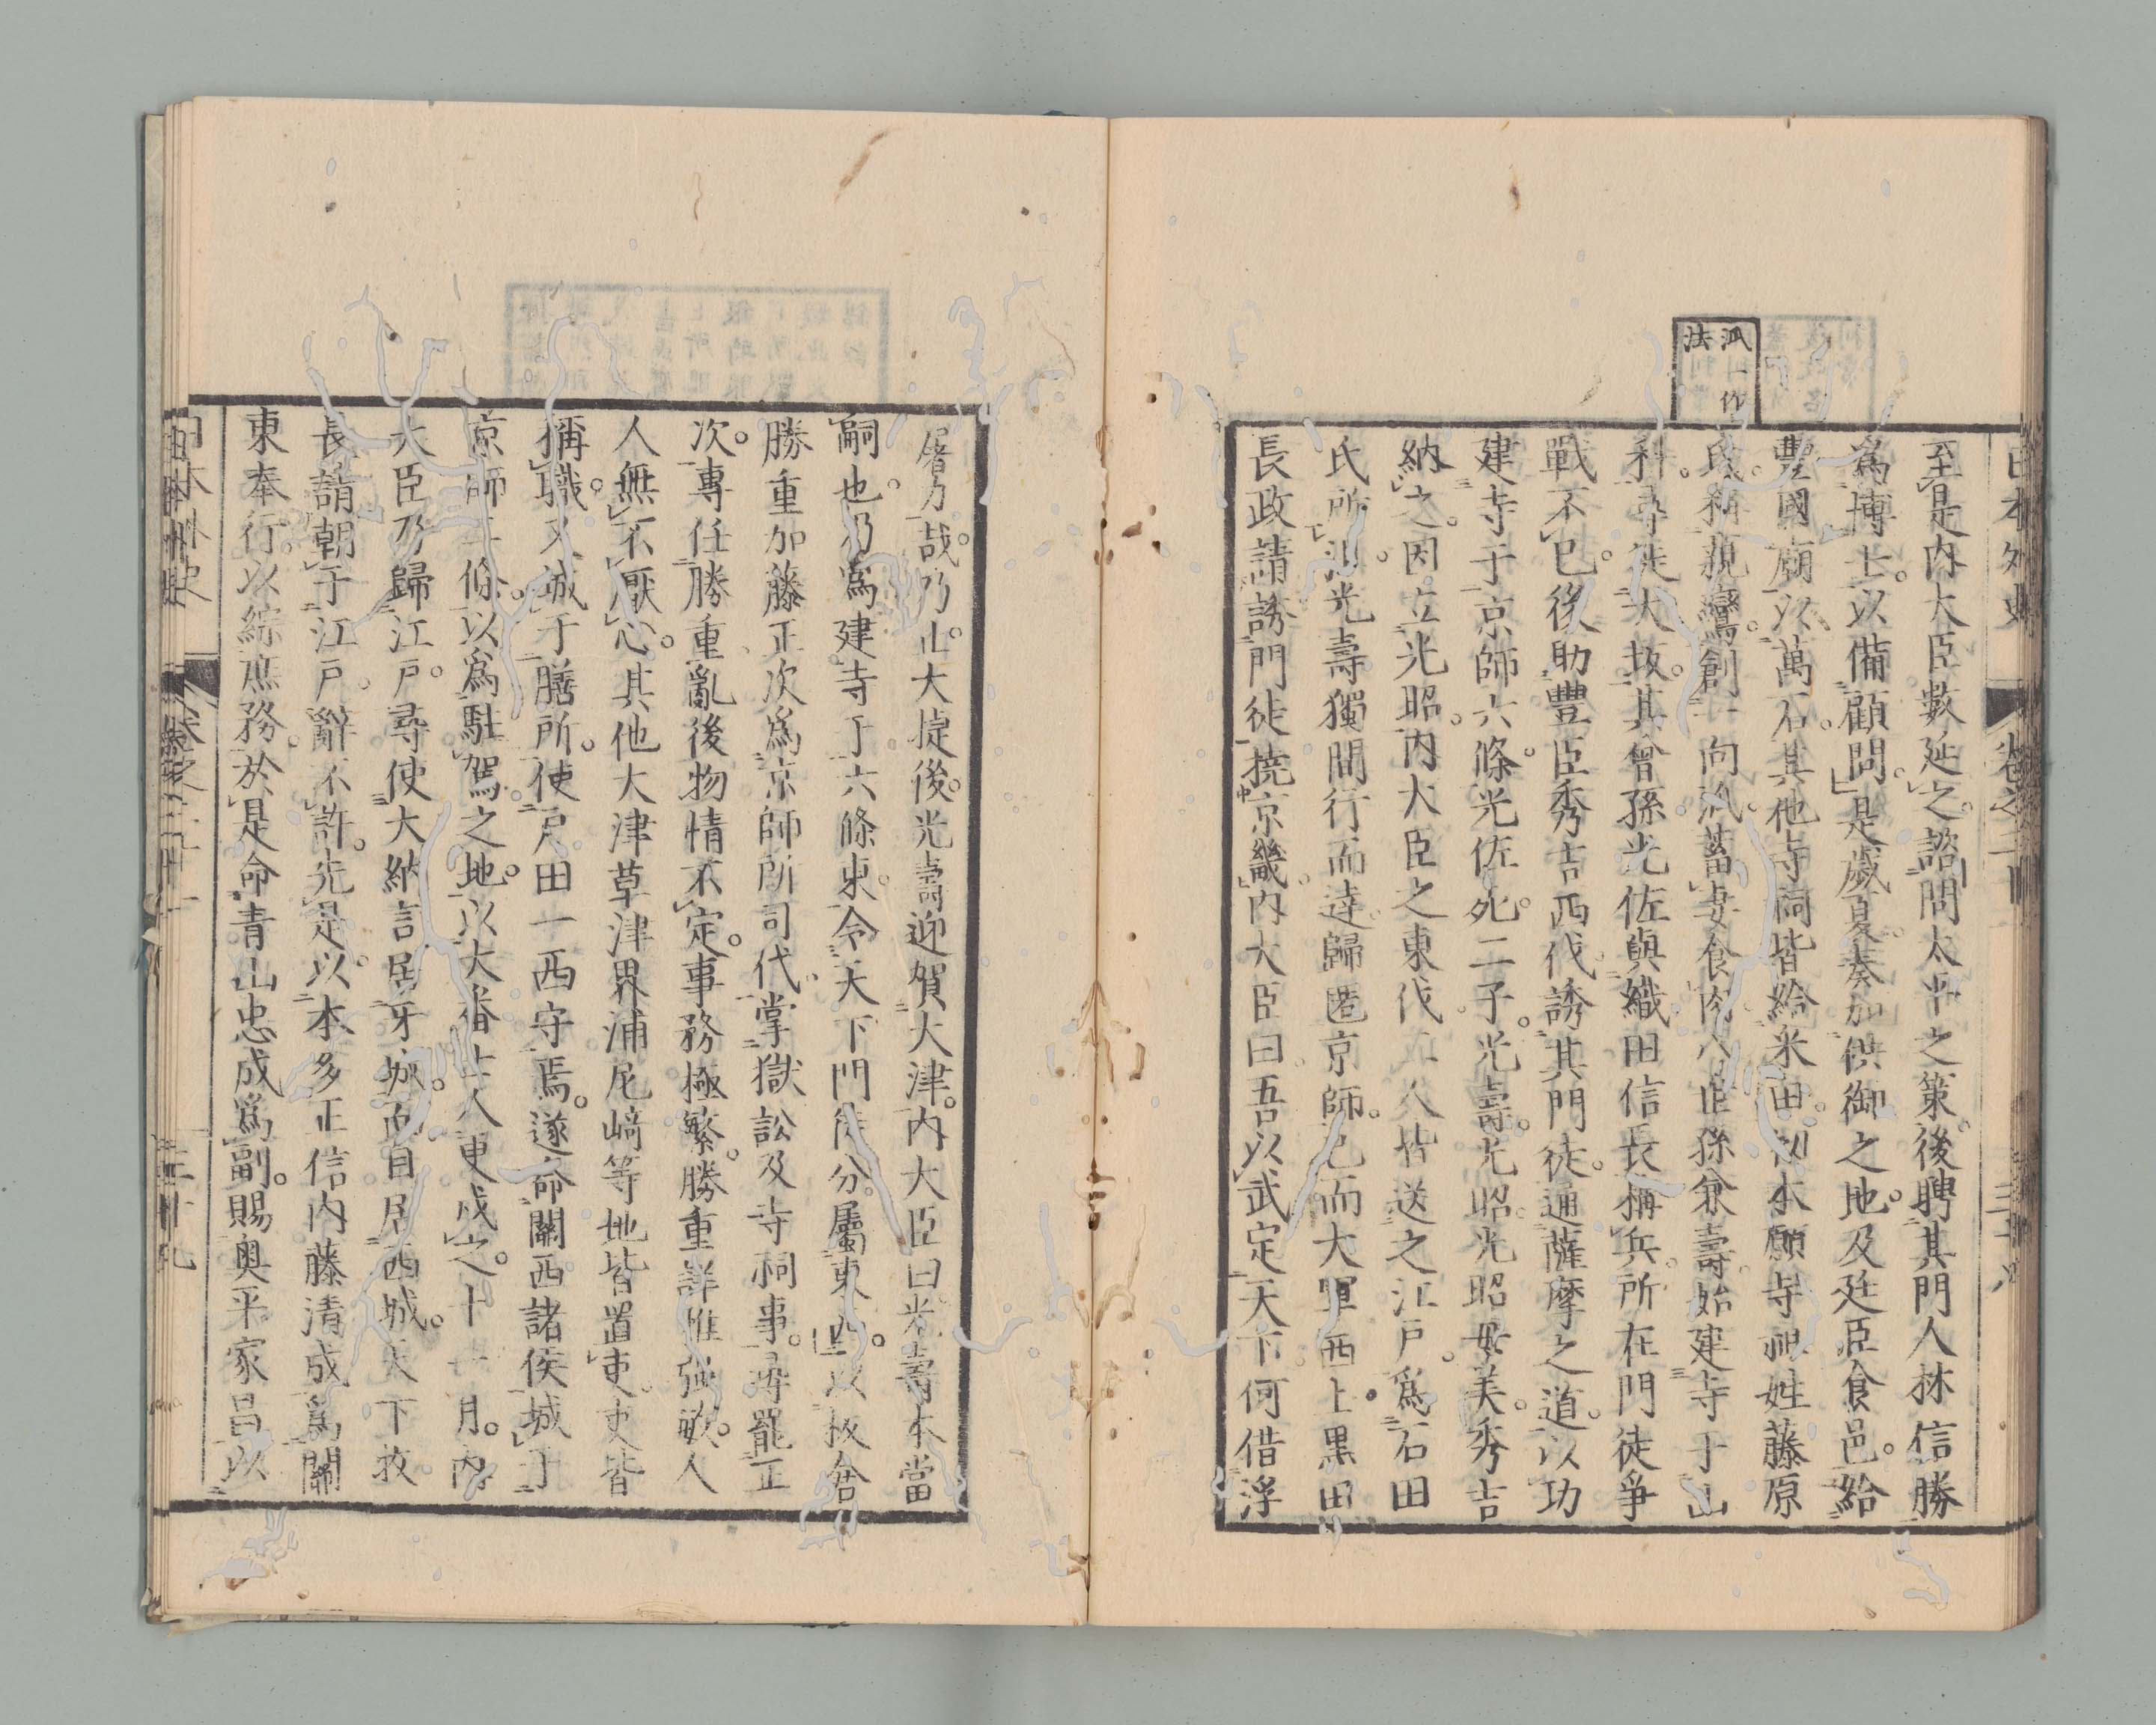 日本外史
卷之二十
派一作
法
至是内大臣數延之諮問太平之策。後聘其門人林信勝
爲博士。以備顧問。是歲夏奏加供御之地。及廷臣食邑。給
豐國廟以萬石。其他寺祠皆給米田。初本願寺祖姓藤原
氏。稱親鸞。創一向派。蓄妻食肉。八世孫兼壽。始建寺于山
科。尋徙大坂。其曾孫光佐與織田信長搆兵。所在門徒爭
戰不已。後助豐臣秀吉西伐。誘其門徒。通薩摩之道。以功
建寺于京師六條。光佐死。二子光壽。光昭。光昭母美。秀吉
納之。因立光昭。内大臣之東伐 人皆送之江戸。爲石田
氏所 光壽獨間行而達。歸匿京師。已而大軍西上。黒田
長政請誘門徒撓京畿。内大臣曰吾以武定天下。何借浮
屠力哉。乃止。大捷後。光壽迎賀大津。内大臣曰光壽本當
嗣也。乃爲建寺于六條東。令天下門徒分屬東西。以板倉
勝重加藤正次爲京師所司代。掌獄訟及寺祠事。尋罷正
次。專任勝重。亂後物情不定。事務極繁。勝重詳 強敏。人
人無不厭心。其他大津草津界浦尼﨑等地皆置吏。吏皆
稱職。又城于膳所。使戸田一西守焉。遂命關西諸侯城于
京師二條。以爲駐駕之地。以大番士人更戍之。十一月。内
大臣乃歸江戸。尋使大納言居牙城。而自居西城。天下牧
長請朝于江戸。辭不許。先是。以本多正信内藤清成爲關
東奉行。以綜庶務。於是命青山忠成爲副。賜奥平家昌以
日本外史
卷之二十一
三十九